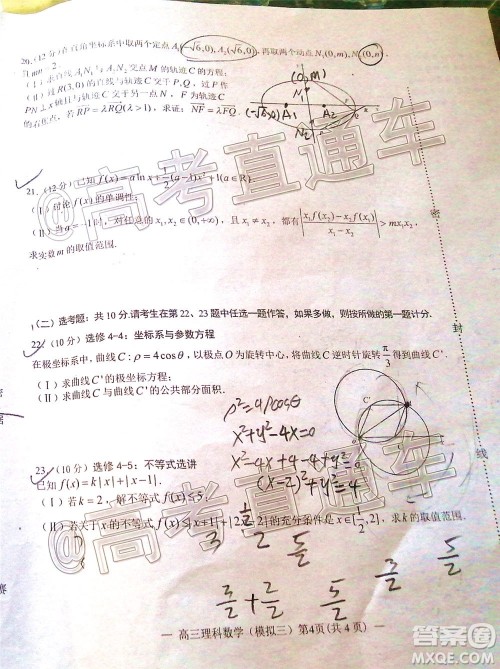 20.(12分)在直角坐标系中取两个定点A₁(−√6,0),A₂(√6,0),再取两个动点N₁(0,m),N₂(0,n),
且mn=2.
(Ⅰ)求直线A₁N₁与A₂N₂交点的轨迹C的方程;
(Ⅱ)过R(3,0)的直线与轨迹C交于P,Q,过P作
PN⊥x轴且与轨迹C交于另一点N,F为轨迹C
的右焦点,若RP=λRQ(λ>1),求证:NF=λFQ.
(0,m)
N₁
(-√6,0) A₁ A₂
N₂
21.(12分)已知f(x)=a ln x+½(a−1)x²+1(a∈R).
(Ⅰ)讨论f(x)的单调性;
(Ⅱ)当a=−1时,对任意的x₁,x₂∈(0,+∞),且x₁≠x₂,都有|(x₁f(x₂)−x₂f(x₁))/(x₁−x₂)|>mx₁x₂,
求实数m的取值范围.
(二)选考题:共10分.请考生在第22、23题中任选一题作答,如果多做,则按所做的第一题计分.
22.(10分)选修4-4:坐标系与参数方程
在极坐标系中,曲线C:ρ=4cosθ,以极点O为旋转中心,将曲线C逆时针旋转π/3得到曲线C'.
(Ⅰ)求曲线C'的极坐标方程;
(Ⅱ)求曲线C与曲线C'的公共部分面积.
ρ²=4ρcosθ
x²+y²-4x=0
x²-4x+4-4+y²=0
(x-2)²+y²=4
C'
23.(10分)选修4-5:不等式选讲
已知f(x)=k|x|+|x−1|.
(Ⅰ)若k=2,解不等式f(x)≤5.
(Ⅱ)若关于x的不等式f(x)≤|x+1|+|2x−2|的充分条件是x∈[½,2],求k的取值范围.
3/2 5/2
3/2+2/2 5/2 3/2 5/2
— 高三理科数学(模拟三)第4页(共4页) —
密
封
线
@高考直通车
@高考直通车
答案圈
MXQE.COM